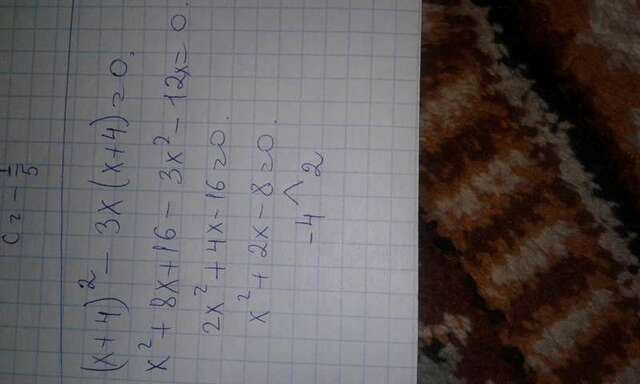 C = -1/5
(x+4)² - 3x(x+4) = 0.
x² + 8x + 16 - 3x² - 12x = 0
2x² + 4x - 16 = 0.
x² + 2x - 8 = 0.
^
-4 2